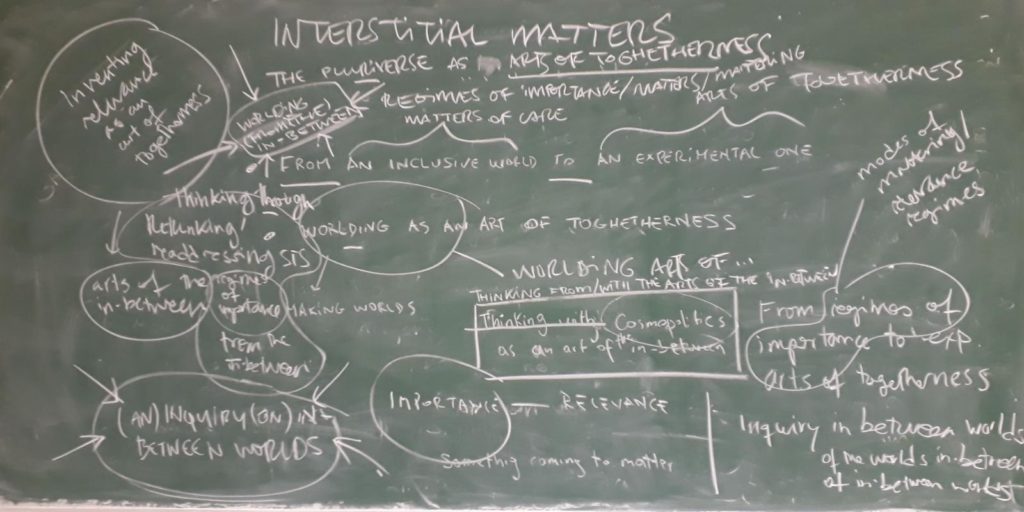 INTERSTITIAL MATTERS
THE PLURIVERSE AS ARTS OF TOGHETHERNESS
Inventing
relevance
as an
art of
togetherness
WORLDING
IN-BETWEEN
REGIMES OF IMPORTANCE/MATTERS/MATTERING
MATTERS OF CARE
ARTS OF TOGETHERNESS
FROM AN INCLUSIVE WORLD TO AN EXPERIMENTAL ONE
modes of
mattering/
relevance
regimes
Thinking through
Rethinking/
readdressing STS
WORLDING AS AN ART OF TOGHETHERNESS
WORLDING ARTS OF ...
THINKING FROM/WITH THE ARTS OF THE INBETWEEN
Thinking with Cosmopolitics
as an art of the in-between
arts of the
in-between
regimes
of
importance
MAKING WORLDS
from the
inbetween
From regimes of
importance to exp.
arts of togetherness
(AN) INQUIRY (ON) IN-
BETWEEN WORLDS
IMPORTANCE — RELEVANCE
Something coming to matter
Inquiry in between worlds
of the worlds in-between
of in-between worlds